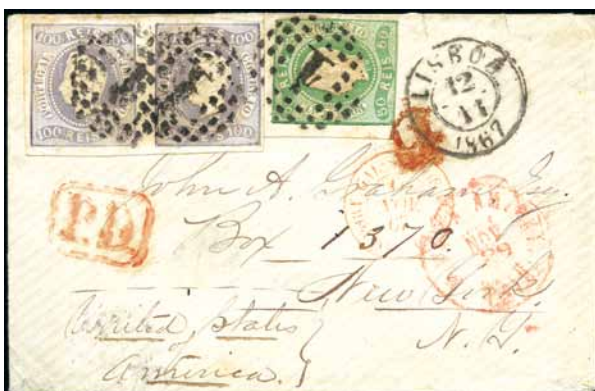 100 REIS 100
100 REIS 100
REIS 50
PORTUGAL
100 REIS 100
100 REIS 100
50 REIS 50
1
1
1
LISBOA
12
11
1867
P.D.
John A. Graham Esq.
Box 1370.
New York.
N. Y.
United States
America.